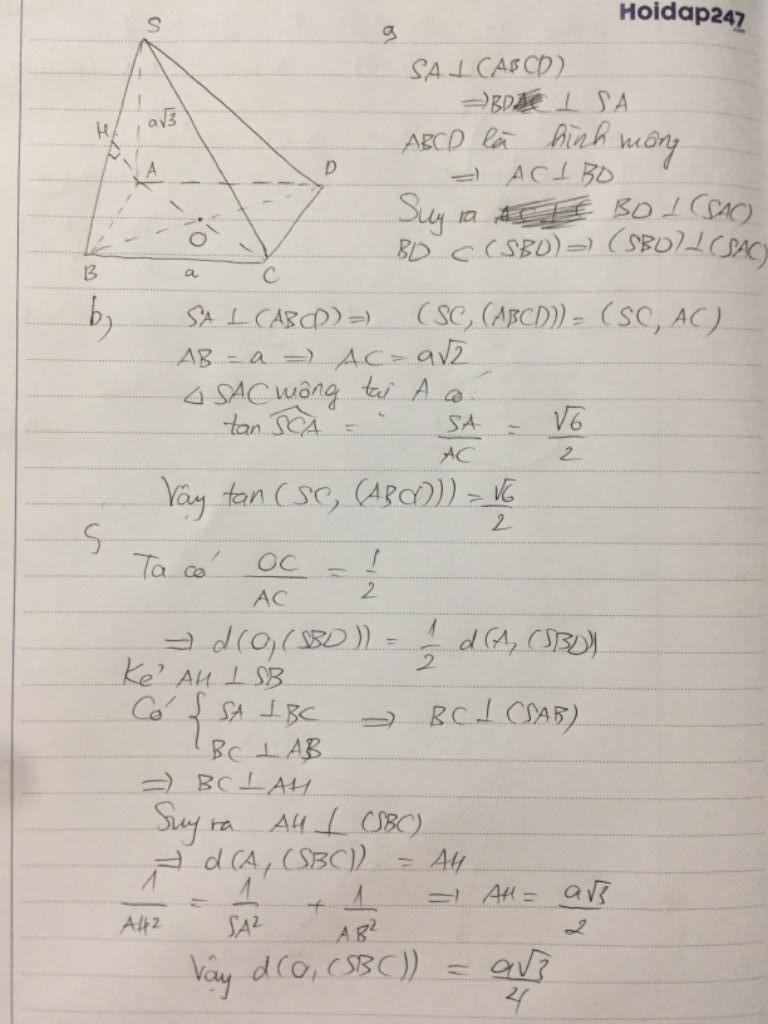 Hoidap247
.com
S
a√3
H
A
D
O
B
a
C
a
SA ⊥ (ABCD)
⇒ BD ⊥ SA
ABCD là hình vuông
⇒ AC ⊥ BD
Suy ra BD ⊥ (SAC)
BD ⊂ (SBD) ⇒ (SBD) ⊥ (SAC)
b,
SA ⊥ (ABCD) ⇒ (SC, (ABCD)) = (SC, AC)
AB = a ⇒ AC = a√2
△ SAC vuông tại A có:
tan SCA = SA/AC = √6/2
Vậy tan (SC, (ABCD)) = √6/2
c,
Ta có OC/AC = 1/2
⇒ d(O, (SBD)) = 1/2 d(A, (SBD))
Kẻ AH ⊥ SB
Có { SA ⊥ BC ⇒ BC ⊥ (SAB)
BC ⊥ AB
⇒ BC ⊥ AH
Suy ra AH ⊥ (SBC)
⇒ d(A, (SBC)) = AH
1/AH² = 1/SA² + 1/AB² ⇒ AH = a√3/2
Vậy d(O, (SBC)) = a√3/4